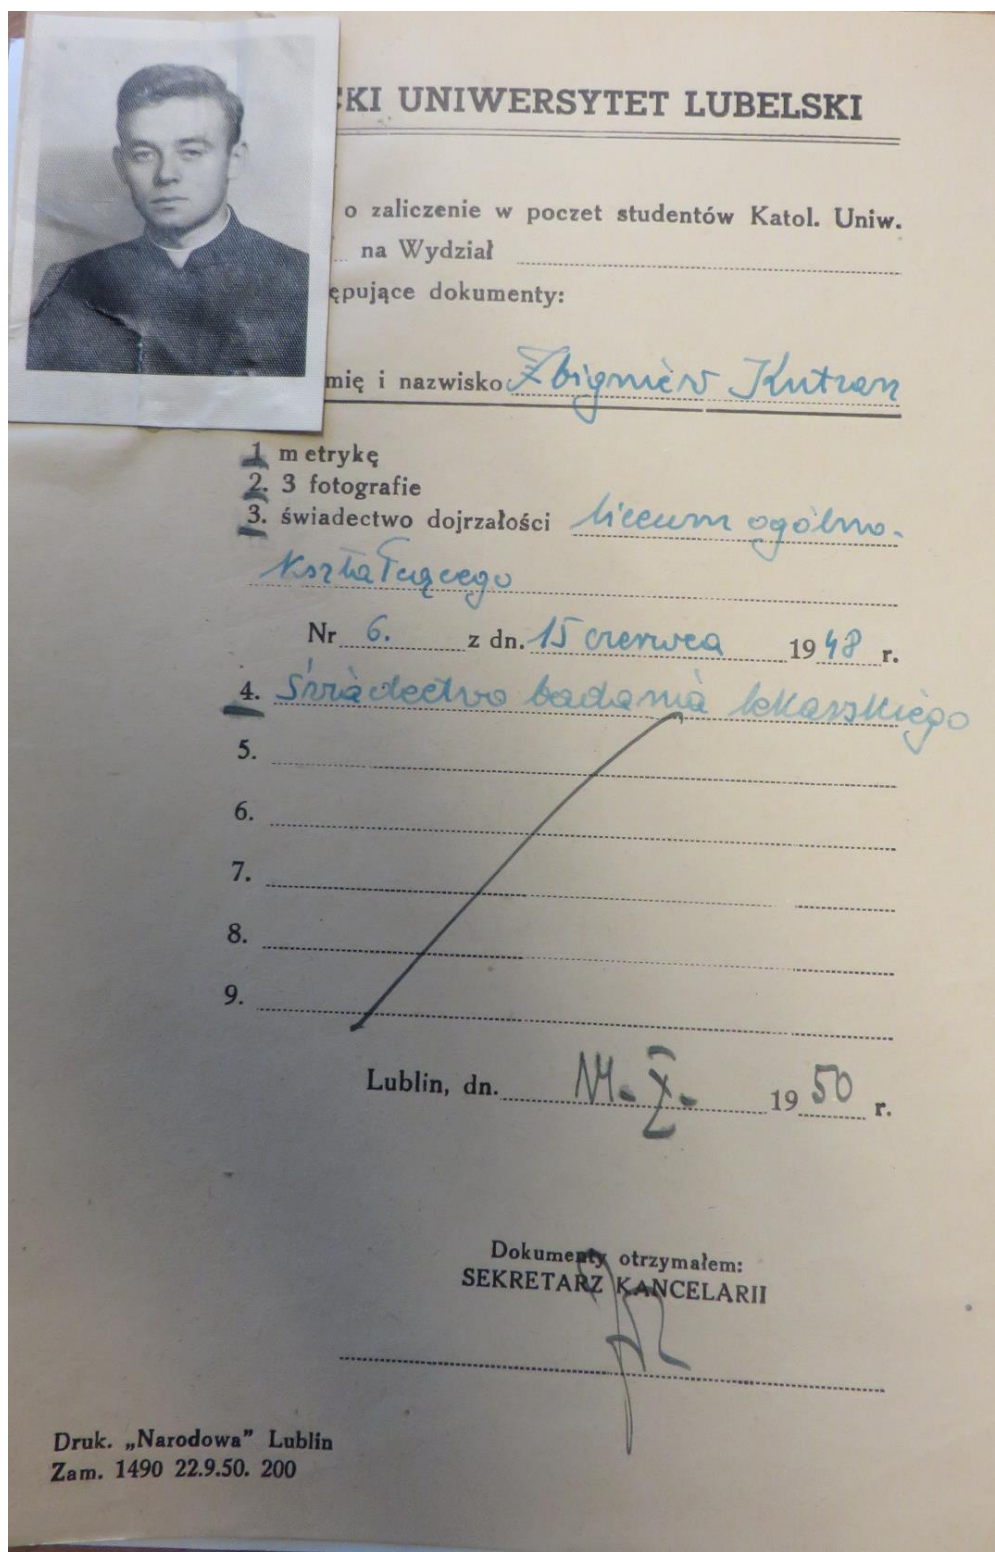 CKI UNIWERSYTET LUBELSKI
o zaliczenie w poczet studentów Katol. Uniw.
na Wydział
ępujące dokumenty:
mię i nazwisko Zbigniew Kutzan
1 metrykę
2. 3 fotografie
3. świadectwo dojrzałości liceum ogólno-
kształcącego
Nr 6. z dn. 15 czerwca 1948 r.
4. Świadectwo badania lekarskiego
5.
6.
7.
8.
9.
Lublin, dn. X. 1950 r.
Dokumenty otrzymałem:
SEKRETARZ KANCELARII
Druk. „Narodowa" Lublin
Zam. 1490 22.9.50. 200